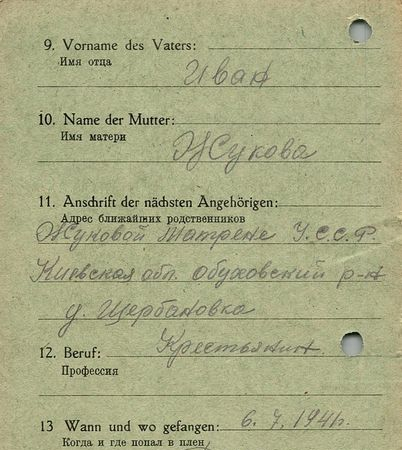 9. Vorname des Vaters:
Имя отца
Иван
10. Name der Mutter:
Имя матери
Жукова
11. Anschrift der nächsten Angehörigen:
Адрес ближайших родственников
Жуковой Матрене У.С.С.Р.
Киевская обл. Обуховский р-н
д. Щербановка
12. Beruf: Крестьянин
Профессия
13 Wann und wo gefangen: 6. 7. 1941г.
Когда и где попал в плен